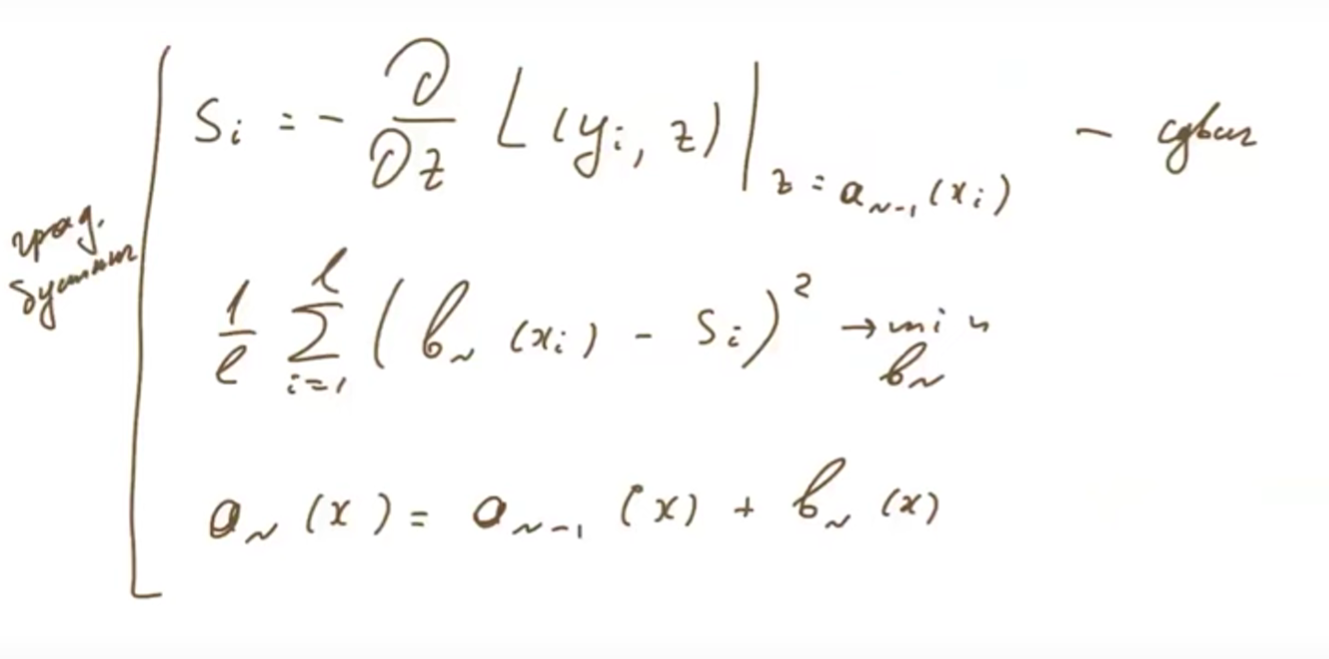 град. бустинг
s_i = - ∂/∂z L(y_i, z) |_{z = a_{N-1}(x_i)} - сдвиг
1/ℓ ∑_{i=1}^{ℓ} (b_N(x_i) - s_i)^2 → min_{b_N}
a_N(x) = a_{N-1}(x) + b_N(x)